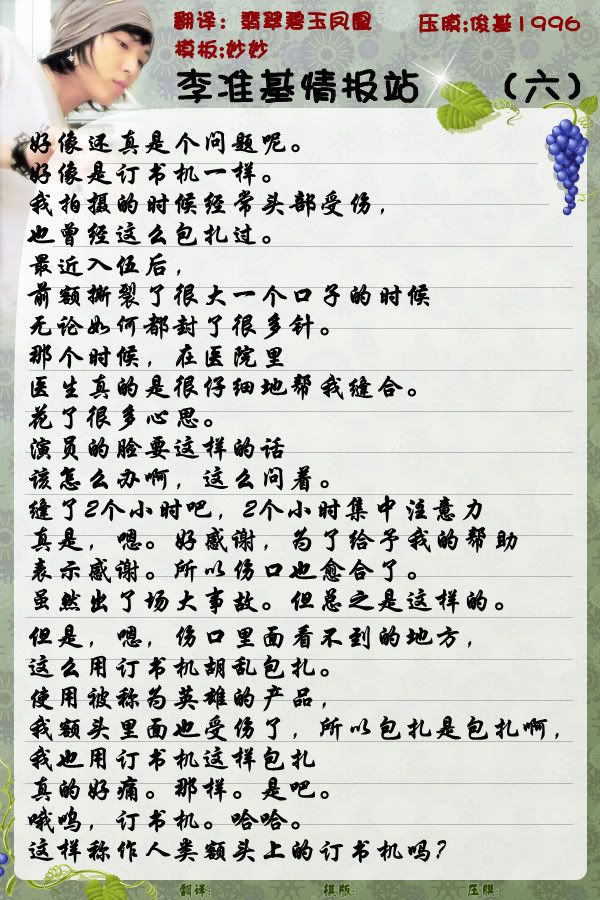 翻译：翡翠碧玉凤凰 压膜;俊基1996
模板;妙妙
李准基情报站 （六）
好像还真是个问题呢。
好像是订书机一样。
我拍摄的时候经常头部受伤，
也曾经这么包扎过。
最近入伍后，
前额撕裂了很大一个口子的时候
无论如何都封了很多针。
那个时候，在医院里
医生真的是很仔细地帮我缝合。
花了很多心思。
演员的脸要这样的话
该怎么办啊，这么问着。
缝了2个小时吧，2个小时集中注意力
真是，嗯。好感谢，为了给予我的帮助
表示感谢。所以伤口也愈合了。
虽然出了场大事故。但总之是这样的。
但是，嗯，伤口里面看不到的地方，
这么用订书机胡乱包扎。
使用被称为英雄的产品，
我额头里面也受伤了，所以包扎是包扎啊，
我也用订书机这样包扎
真的好痛。那样。是吧。
哦呜，订书机。哈哈。
这样称作人类额头上的订书机吗？
翻译： 模版： 压膜：